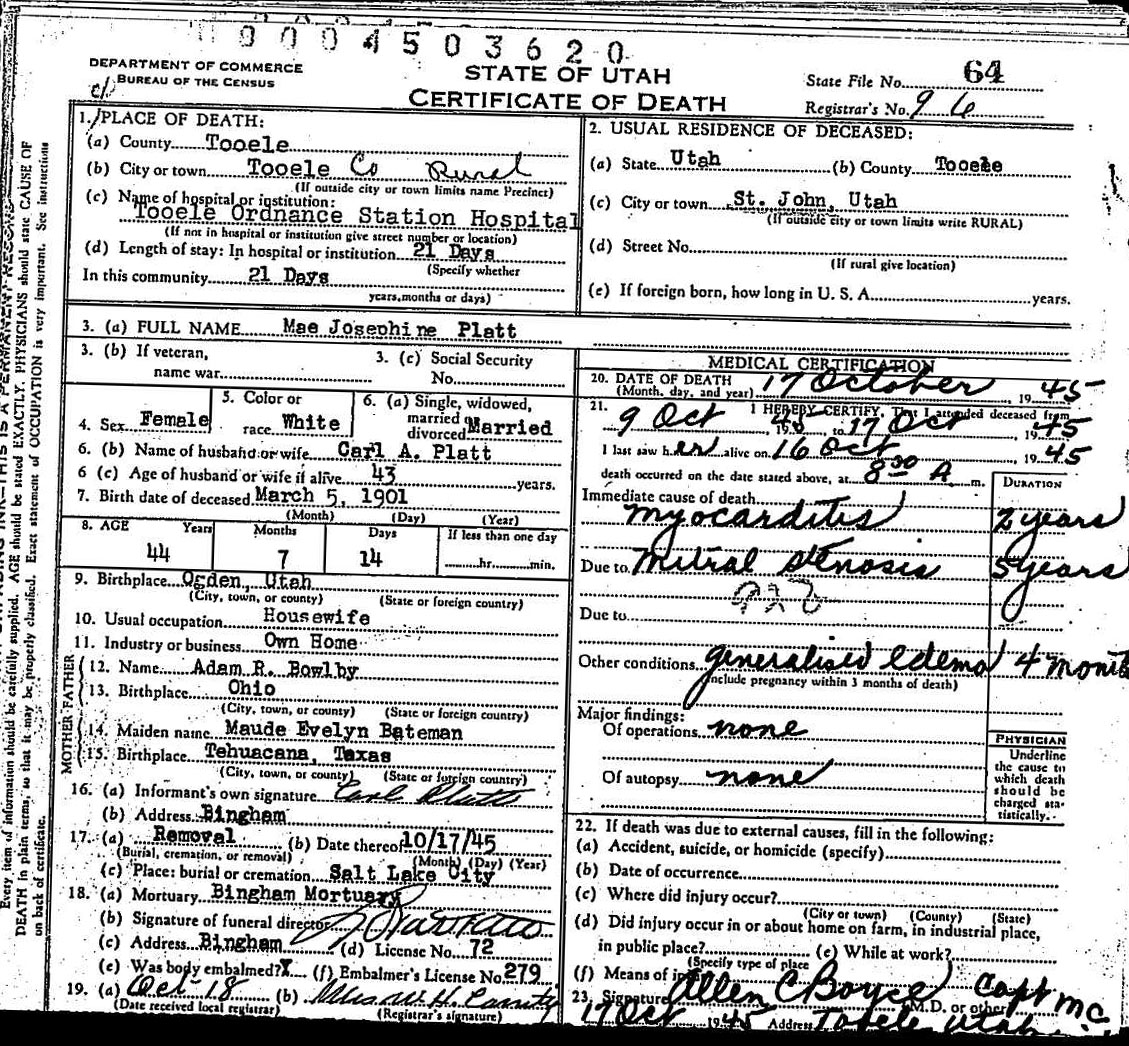 0004503620
DEPARTMENT OF COMMERCE
BUREAU OF THE CENSUS
STATE OF UTAH
CERTIFICATE OF DEATH
State File No. 64
Registrar's No. 96
1. PLACE OF DEATH:
(a) County Tooele
(b) City or town Tooele Co Rural
(If outside city or town limits name Precinct)
(c) Name of hospital or institution:
Tooele Ordnance Station Hospital
(If not in hospital or institution give street number or location)
(d) Length of stay: In hospital or institution 21 Days
(Specify whether
In this community 21 Days
years, months or days)
2. USUAL RESIDENCE OF DECEASED:
(a) State Utah (b) County Tooele
(c) City or town St. John, Utah
(If outside city or town limits write RURAL)
(d) Street No.
(If rural give location)
(e) If foreign born, how long in U. S. A. years.
3. (a) FULL NAME Mae Josephine Platt
3. (b) If veteran,
name war
3. (c) Social Security
No.
4. Sex Female
5. Color or
race White
6. (a) Single, widowed,
married
divorced Married
6. (b) Name of husband or wife Carl A. Platt
6 (c) Age of husband or wife if alive 43 years.
7. Birth date of deceased March 5, 1901
(Month) (Day) (Year)
8. AGE Years Months Days If less than one day
44 7 14 hr. min.
9. Birthplace Ogden, Utah
(City, town, or county) (State or foreign country)
10. Usual occupation Housewife
11. Industry or business Own Home
FATHER
12. Name Adam R. Bowlby
13. Birthplace Ohio
(City, town, or county) (State or foreign country)
MOTHER
14. Maiden name Maude Evelyn Bateman
15. Birthplace Tehuacana, Texas
(City, town, or county) (State or foreign country)
16. (a) Informant's own signature Carl Platt
(b) Address Bingham
17. (a) Removal (b) Date thereof 10/17/45
(Burial, cremation, or removal) (Month) (Day) (Year)
(c) Place: burial or cremation Salt Lake City
18. (a) Mortuary Bingham Mortuary
(b) Signature of funeral director
(c) Address Bingham (d) License No. 72
(e) Was body embalmed? X (f) Embalmer's License No. 279
19. (a) Oct 18 (b) W. H.
(Date received local registrar) (Registrar's signature)
MEDICAL CERTIFICATION
20. DATE OF DEATH 17 October 1945
(Month, day, and year)
21. I HEREBY CERTIFY, That I attended deceased from
9 Oct 1945 to 17 Oct 1945
I last saw her alive on 16 Oct 1945
death occurred on the date stated above, at 8 30 A m.
DURATION
Immediate cause of death
Myocarditis 2 years
Due to Mitral Stenosis 5 years
Due to
Other conditions generalised edema 4 months
(Include pregnancy within 3 months of death)
Major findings:
Of operations none
Of autopsy none
PHYSICIAN
Underline
the cause to
which death
should be
charged sta-
tistically.
22. If death was due to external causes, fill in the following:
(a) Accident, suicide, or homicide (specify)
(b) Date of occurrence
(c) Where did injury occur?
(City or town) (County) (State)
(d) Did injury occur in or about home on farm, in industrial place,
in public place? (e) While at work?
(Specify type of place
(f) Means of
23. Signature Allen C Boyce Capt MC
M.D. or other
17 Oct 1945 Address Tooele Utah
Every item of information should be carefully supplied. AGE should be stated EXACTLY. PHYSICIANS should state CAUSE OF
DEATH in plain terms, so that it may be properly classified. Exact statement of OCCUPATION is very important. See instructions
on back of certificate.